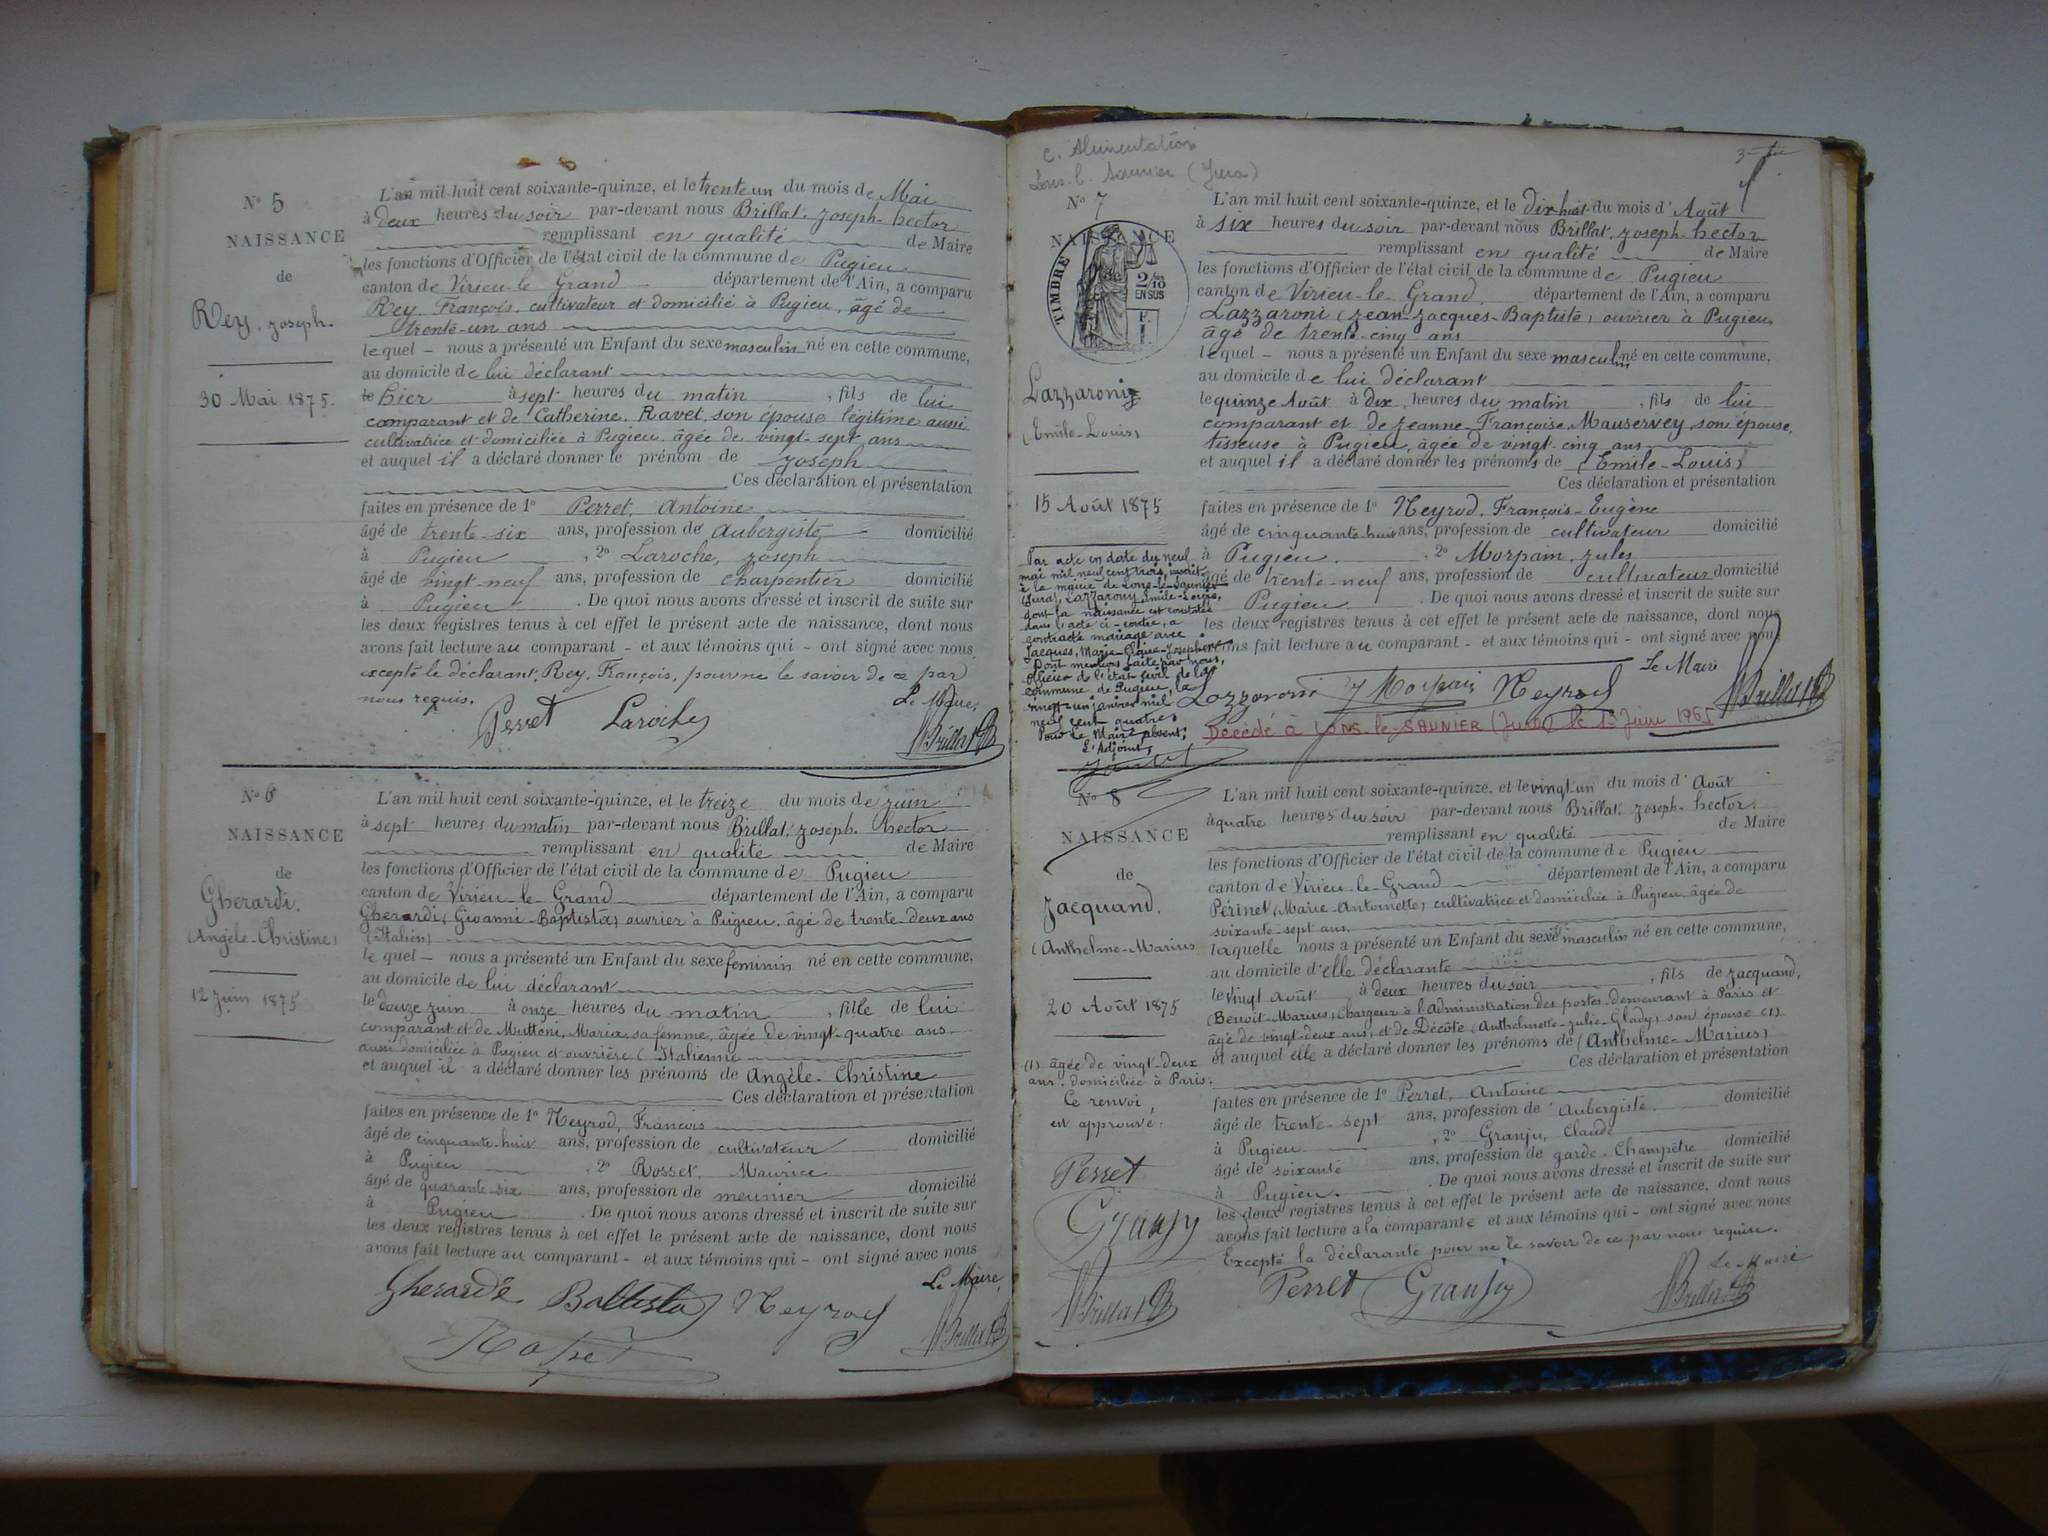 N° 5
NAISSANCE
de
Rey, Joseph.
30 Mai 1875.
L'an mil huit cent soixante-quinze, et le trente un du mois de Mai
à deux heures du soir par-devant nous Brillat, Joseph-hector
remplissant en qualité de Maire
les fonctions d'Officier de l'état civil de la commune de Pugieu
canton de Virieu-le-Grand département de l'Ain, a comparu
Rey, François, cultivateur et domicilié à Pugieu, âgé de
trente-un ans
lequel - nous a présenté un Enfant du sexe masculin né en cette commune,
au domicile de lui déclarant
le hier à sept heures du matin, fils de lui
comparant et de Catherine Ravet, son épouse légitime aussi
cultivatrice et domiciliée à Pugieu, âgée de vingt-sept ans
et auquel il a déclaré donner le prénom de Joseph
Ces déclaration et présentation
faites en présence de 1° Perret, Antoine
âgé de trente-six ans, profession de Aubergiste domicilié
à Pugieu, 2° Laroche, Joseph
âgé de vingt-neuf ans, profession de charpentier domicilié
à Pugieu. De quoi nous avons dressé et inscrit de suite sur
les deux registres tenus à cet effet le présent acte de naissance, dont nous
avons fait lecture au comparant - et aux témoins qui - ont signé avec nous
excepté le déclarant, Rey, François, pour ne le savoir de ce par
nous requis. Le Maire,
Perret Laroche Brillat
N° 6
NAISSANCE
de
Gherardi.
(Angèle-Christine)
12 Juin 1875
L'an mil huit cent soixante-quinze, et le treize du mois de Juin
à sept heures du matin par-devant nous Brillat, Joseph-hector
remplissant en qualité de Maire
les fonctions d'Officier de l'état civil de la commune de Pugieu
canton de Virieu-le-Grand département de l'Ain, a comparu
Gherardi, (Giovanni-Baptista) ouvrier à Pugieu, âgé de trente-deux ans
(Italien)
lequel - nous a présenté un Enfant du sexe feminin né en cette commune,
au domicile de lui déclarant
le douze Juin à onze heures du matin, fille de lui
comparant et de Muttoni, Maria, sa femme, âgée de vingt-quatre ans
aussi domiciliée à Pugieu et ouvrière (Italienne
et auquel il a déclaré donner les prénoms de Angèle-Christine
Ces déclaration et présentation
faites en présence de 1° Neyrod, François
âgé de cinquante-huit ans, profession de cultivateur domicilié
à Pugieu, 2° Rosset, Maurice
âgé de quarante-six ans, profession de meunier domicilié
à Pugieu. De quoi nous avons dressé et inscrit de suite sur
les deux registres tenus à cet effet le présent acte de naissance, dont nous
avons fait lecture au comparant - et aux témoins qui - ont signé avec nous
Le Maire,
Gherardi Battista Neyrod Brillat
Rosset
C. Alimentation
Lons-l-Saunier (Jura)
N° 7
NAISSANCE
TIMBRE
2/10
EN SUS
Lazzaroni
(Emile-Louis)
15 Août 1875
Par acte en date du neuf
mai mil neuf cent trois, inscrit
à la mairie de Lons-le-Saunier
(Jura), Lazzarony Emile-Louis,
dont la naissance est constatée
dans l'acte ci-contre, a
contracté mariage avec
Jacques, Marie-Claire-Josephine
Dont mention faite par nous,
Officier de l'état civil de la
commune de Pugieu, le
vingt-un janvier mil
neuf cent quatre
Pour le Maire absent:
L'Adjoint,
L'an mil huit cent soixante-quinze, et le dix-huit du mois d'Août
à six heures du soir par-devant nous Brillat, Joseph-hector
remplissant en qualité de Maire
les fonctions d'Officier de l'état civil de la commune de Pugieu
canton de Virieu-le-Grand département de l'Ain, a comparu
Lazzaroni (Jean-Jacques-Baptiste) ouvrier à Pugieu,
âgé de trente-cinq ans
lequel - nous a présenté un Enfant du sexe masculin né en cette commune,
au domicile de lui déclarant
le quinze Août à dix heures du matin, fils de lui
comparant et de Jeanne-Françoise Mauservey son épouse,
tisseuse à Pugieu, âgée de vingt-cinq ans
et auquel il a déclaré donner les prénoms de (Emile-Louis)
Ces déclaration et présentation
faites en présence de 1° Neyrod, François-Eugène
âgé de cinquante-huit ans, profession de cultivateur domicilié
à Pugieu, 2° Morpain, Jules
âgé de trente-neuf ans, profession de cultivateur domicilié
Pugieu. De quoi nous avons dressé et inscrit de suite sur
les deux registres tenus à cet effet le présent acte de naissance, dont nous
avons fait lecture au comparant - et aux témoins qui - ont signé avec nous
Le Maire
Lazzaroni J Morpain Neyrod Brillat
Décédé à LONS-le-SAUNIER (Jura) le Juin
N° 8
NAISSANCE
de
Jacquand,
(Anthelme-Marius
20 Août 1875
(1) âgée de vingt-deux
ans, domiciliée à Paris.
Ce renvoi
est approuvé.
Perret
Granju
Brillat
L'an mil huit cent soixante-quinze, et le vingt un du mois d'Août
à quatre heures du soir par-devant nous Brillat, Joseph-hector
remplissant en qualité de Maire
les fonctions d'Officier de l'état civil de la commune de Pugieu
canton de Virieu-le-Grand département de l'Ain, a comparu
Périnet (Marie-Antoinette) cultivatrice et domiciliée à Pugieu, âgée de
soixante-sept ans
laquelle nous a présenté un Enfant du sexe masculin né en cette commune,
au domicile d'elle déclarante
le vingt août à deux heures du soir, fils de Jacquand,
(Benoit-Marius) Chargeur à l'administration des postes, demeurant à Paris et
âgé de vingt-deux ans, et de Décôte (Anthelmette-Julie-Glady) son épouse (1)
et auquel elle a déclaré donner les prénoms de (Anthelme-Marius)
Ces déclaration et présentation
faites en présence de 1° Perret, Antoine
âgé de trente-sept ans, profession de Aubergiste domicilié
à Pugieu, 2° Granju, Claude
âgé de soixante ans, profession de garde-Champêtre domicilié
à Pugieu. De quoi nous avons dressé et inscrit de suite sur
les deux registres tenus à cet effet le présent acte de naissance, dont nous
avons fait lecture à la comparante et aux témoins qui - ont signé avec nous
Excepté la déclarante pour ne le savoir de ce par nous requise.
Le Maire
Perret Granju Brillat